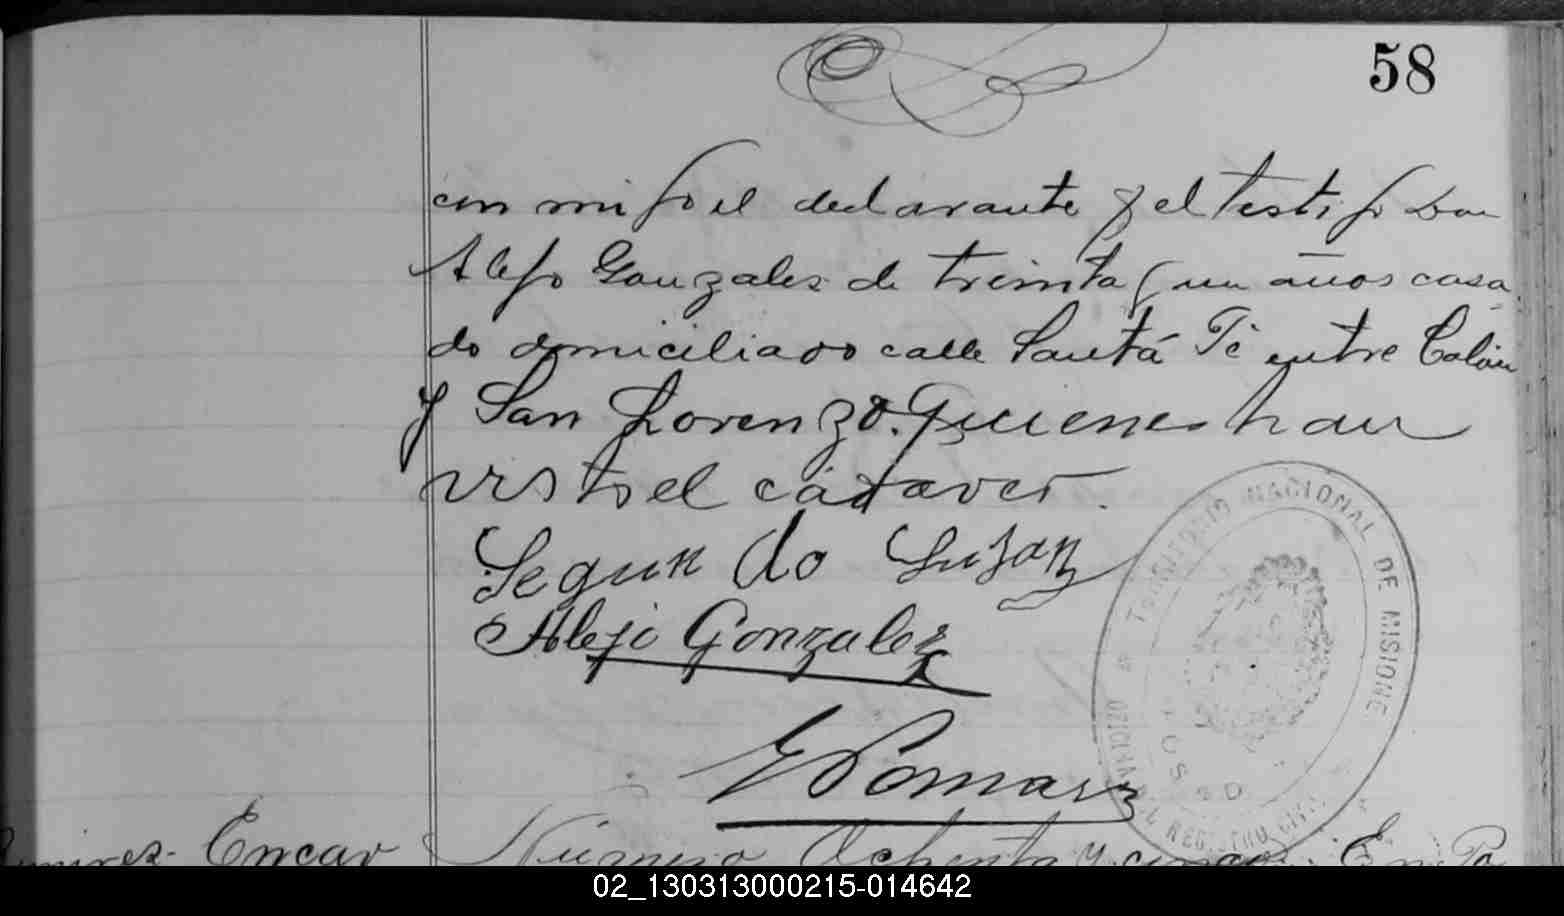 58
con migo el declarante y el testigo Don
Alejo Gonzales de treinta y un años casa
do domiciliado calle Santa Fé entre Colón
y San Lorenzo. Quienes han
visto el cadaver.
Segundo Luján
Alejo Gonzalez
TERRITORIO NACIONAL DE MISIONE
REGISTRO CIVIL
Ramirez Encar
Número Ochenta y cinco. En Po
02_130313000215-014642